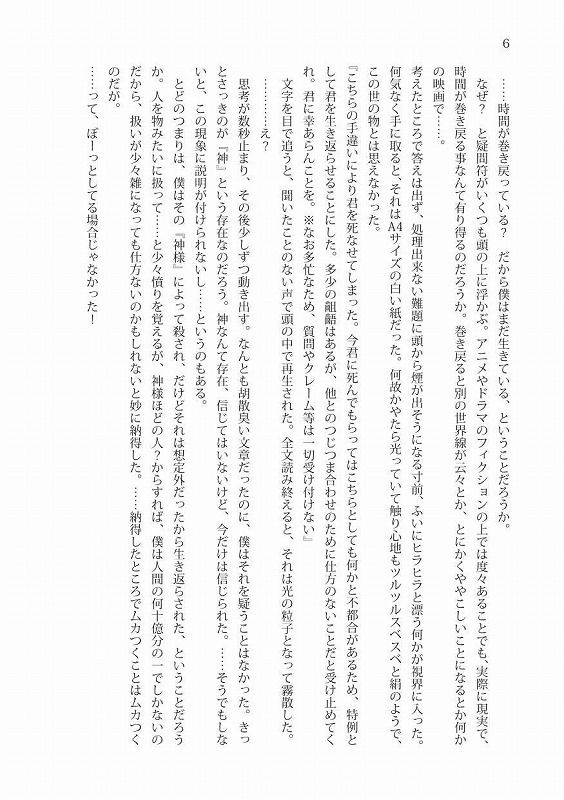 6
……時間が巻き戻っている？　だから僕はまだ生きている、ということだろうか。
なぜ？　と疑問符がいくつも頭の上に浮かぶ。アニメやドラマのフィクションの上では度々あることでも、実際に現実で、
時間が巻き戻る事なんて有り得るのだろうか。巻き戻ると別の世界線が云々とか、とにかくややこしいことになるとか何か
の映画で……。
考えたところで答えは出ず、処理出来ない難題に頭から煙が出そうになる寸前、ふいにヒラヒラと漂う何かが視界に入った。
何気なく手に取ると、それはA4サイズの白い紙だった。何故かやたら光っていて触り心地もツルツルスベスベと絹のようで、
この世の物とは思えなかった。
『こちらの手違いにより君を死なせてしまった。今君に死んでもらってはこちらとしても何かと不都合があるため、特例と
して君を生き返らせることにした。多少の齟齬はあるが、他とのつじつま合わせのために仕方のないことだと受け止めてく
れ。君に幸あらんことを。※なお多忙なため、質問やクレーム等は一切受け付けない』
文字を目で追うと、聞いたことのない声で頭の中で再生された。全文読み終えると、それは光の粒子となって霧散した。
…………え？
思考が数秒止まり、その後少しずつ動き出す。なんとも胡散臭い文章だったのに、僕はそれを疑うことはなかった。きっ
とさっきのが『神』という存在なのだろう。神なんて存在、信じてはいないけど、今だけは信じられた。……そうでもしな
いと、この現象に説明が付けられないし……というのもある。
とどのつまりは、僕はその『神様』によって殺され、だけどそれは想定外だったから生き返らされた、ということだろう
か。人を物みたいに扱って……と少々憤りを覚えるが、神様ほどの人？からすれば、僕は人間の何十億分の一でしかないの
だから、扱いが少々雑になっても仕方ないのかもしれないと妙に納得した。……納得したところでムカつくことはムカつく
のだが。
……って、ぼーっとしてる場合じゃなかった！